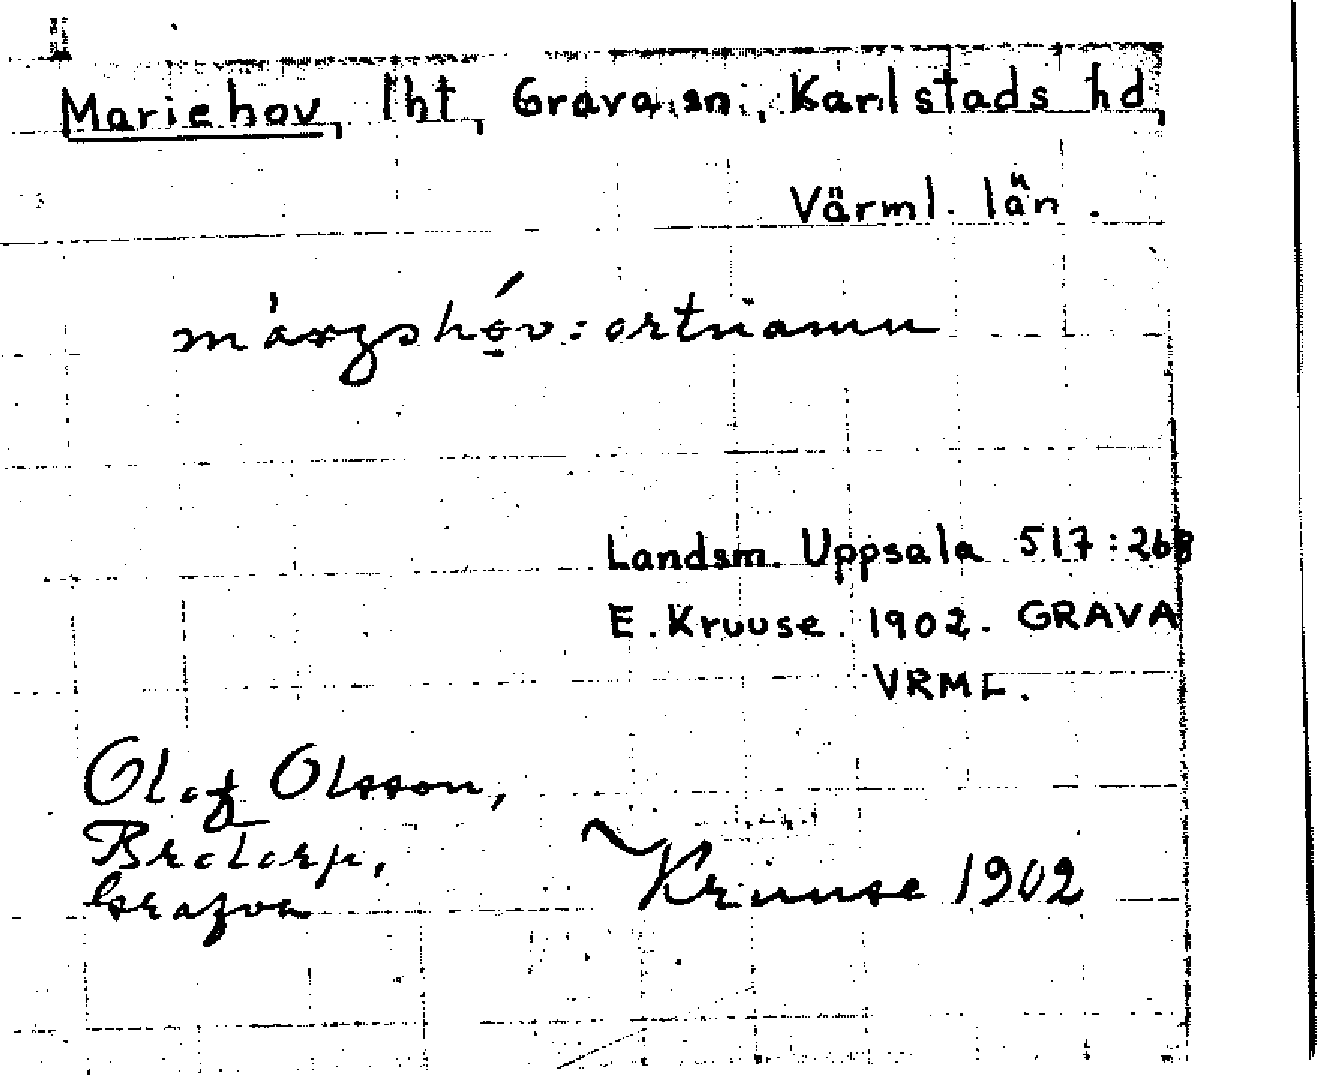 Mariehov, lht, Grava sn., Karlstads hd,
Värml. län.
ortnamn
Landsm. Uppsala 517:268
E. Kruuse. 1902. GRAVA
VRML.
Olof Olsson,
Brotorp,
Grafva
Kruuse 1902